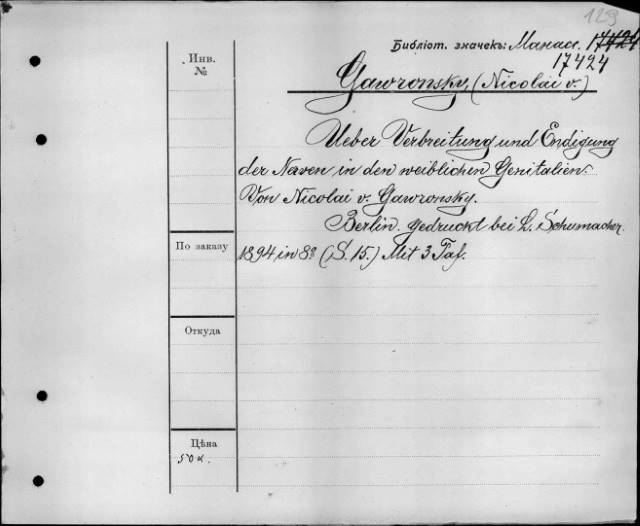 129
Библіот. значекъ: Манас. 17424
17424
Инв.
№
Gawronsky, (Nicolai v.)
Ueber Verbreitung und Endigung
der Nerven in den weiblichen Genitalien.
Von Nicolai v. Gawronsky.
Berlin. gedruckt bei L. Schumacher.
По заказу
1894 in 8º (S. 15.) Mit 3 Taf.
Откуда
Цѣна
50 к.